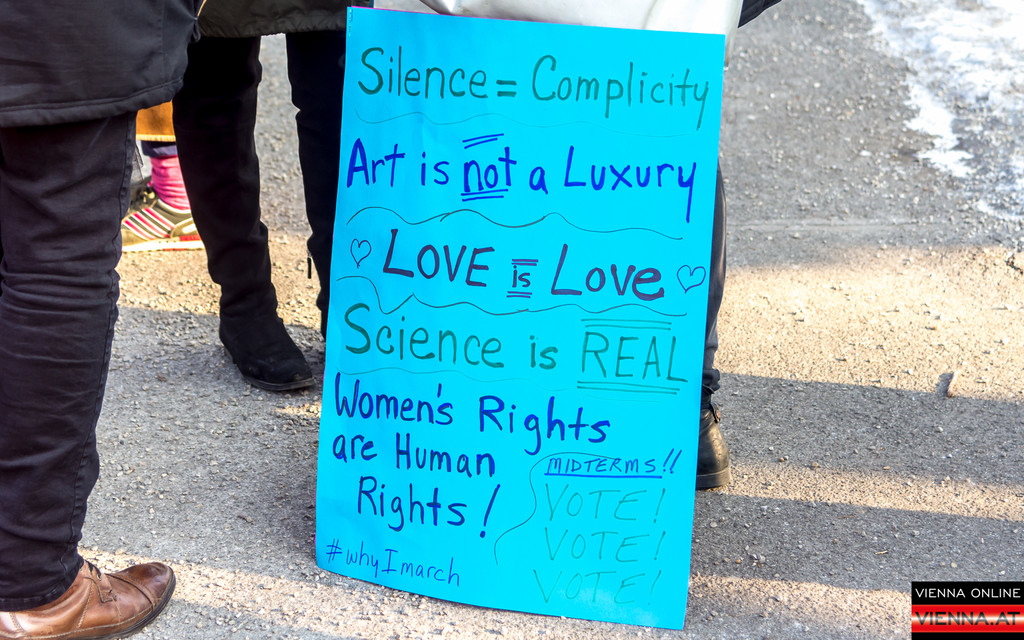 Silence = Complicity
Art is not a Luxury
♡ LOVE is Love ♡
Science is REAL
Women's Rights
are Human
Rights!
MIDTERMS!!
VOTE!
VOTE!
VOTE!
#whyImarch
VIENNA ONLINE
VIENNA.AT